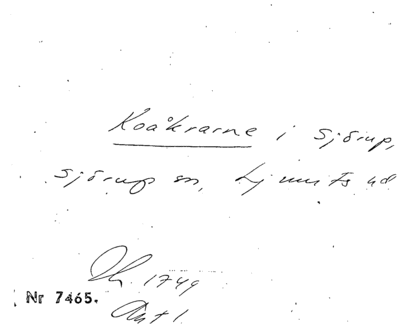 Koåkrarne i Sjörup,
Sjörup sn, Ljunits hd
1749
Nr 7465.
Akt 1.